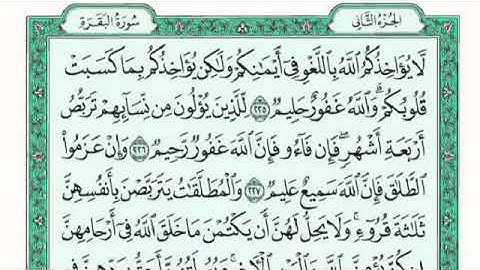 الجزء الثاني
سورة البقرة
لَّا يُؤَاخِذُكُمُ ٱللَّهُ بِٱللَّغْوِ فِىٓ أَيْمَـٰنِكُمْ وَلَـٰكِن يُؤَاخِذُكُم بِمَا كَسَبَتْ
قُلُوبُكُمْ ۗ وَٱللَّهُ غَفُورٌ حَلِيمٌ ٢٢٥ لِّلَّذِينَ يُؤْلُونَ مِن نِّسَآئِهِمْ تَرَبُّصُ
أَرْبَعَةِ أَشْهُرٍ ۖ فَإِن فَآءُو فَإِنَّ ٱللَّهَ غَفُورٌ رَّحِيمٌ ٢٢٦ وَإِنْ عَزَمُوا۟
ٱلطَّلَـٰقَ فَإِنَّ ٱللَّهَ سَمِيعٌ عَلِيمٌ ٢٢٧ وَٱلْمُطَلَّقَـٰتُ يَتَرَبَّصْنَ بِأَنفُسِهِنَّ
ثَلَـٰثَةَ قُرُوٓءٍ ۚ وَلَا يَحِلُّ لَهُنَّ أَن يَكْتُمْنَ مَا خَلَقَ ٱللَّهُ فِىٓ أَرْحَامِهِنَّ